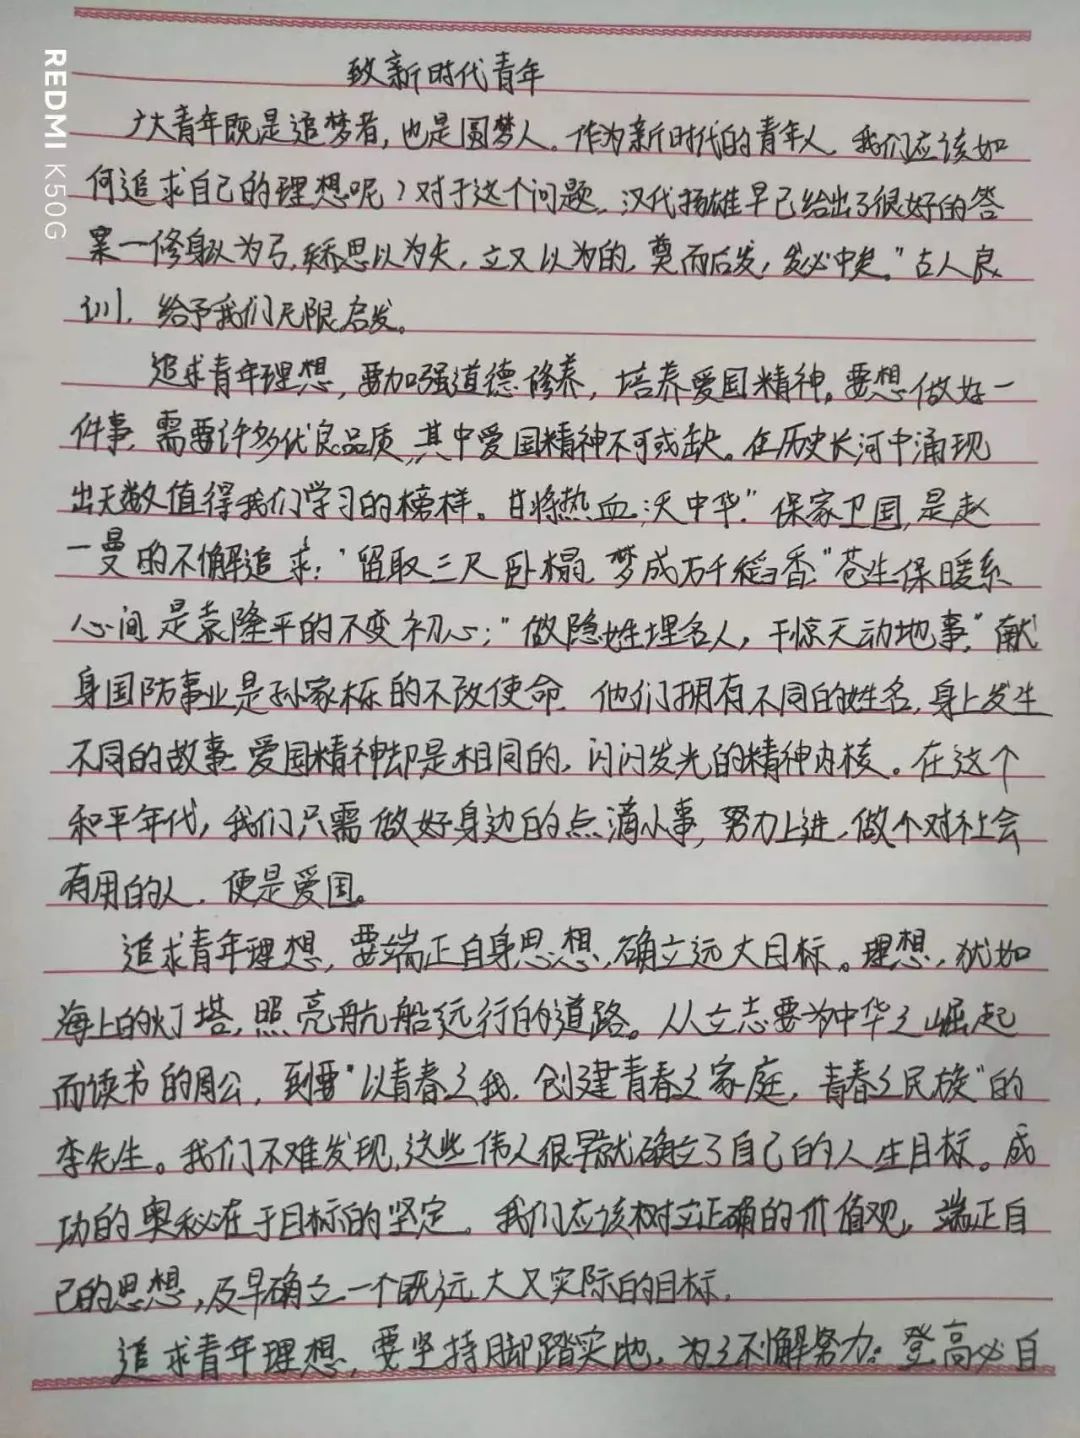 REDMI K50G
致新时代青年
广大青年既是追梦者,也是圆梦人。作为新时代的青年人,我们应该如
何追求自己的理想呢?对于这个问题,汉代扬雄早已给出了很好的答
案一修身以为弓,矫思以为矢,立义以为的,奠而后发,发必中矣。"古人良
训,给予我们无限启发。
追求青年理想,要加强道德修养,培养爱国精神。要想做好一
件事,需要许多优良品质,其中爱国精神不可或缺。在历史长河中涌现
出无数值得我们学习的榜样。甘将热血沃中华"保家卫国,是赵
一曼的不懈追求;"留取三尺卧榻,梦成万千稻香"苍生保暖系
心间是袁隆平的不变初心;"做隐姓埋名人,干惊天动地事,"献
身国防事业是孙家栋的不改使命.他们拥有不同的姓名,身上发生
不同的故事.爱国精神却是相同的,闪闪发光的精神内核。在这个
和平年代,我们只需做好身边的点滴小事,努力上进,做个对社会
有用的人,便是爱国。
追求青年理想,要端正自身思想,确立远大目标。理想,犹如
海上的灯塔,照亮航船远行的道路。从立志要为中华之崛起
而读书的周公,到要"以青春之我,创建青春之家庭,青春之民族"的
李先生。我们不难发现,这些伟人很早就确立了自己的人生目标。成
功的奥秘在于目标的坚定。我们应该树立正确的价值观,端正自
己的思想,及早确立一个既远大又实际的目标.
追求青年理想,要坚持脚踏实地,为之不懈努力。登高必自